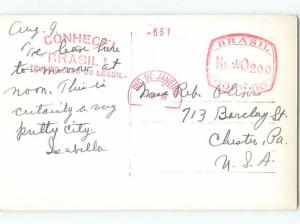 Aug. 9
We leave here
to-morrow at
noon. This is
certainly a very
pretty city.
Isabella
CONHEÇA
BRASIL!
BRASIL
551
RIO DE JANEIRO
BRASIL
Rs. 0200
713 Barclay St
Chester, Pa.
U. S. A